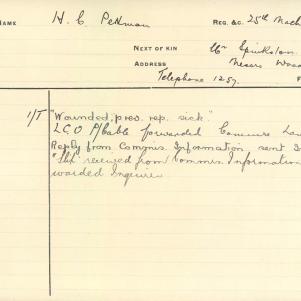 NAME H. C. Pettman REG. &C. 25th Mach
NEXT OF KIN Mr Spinkston
ADDRESS Messrs
Telephone 1257. F
1/T "Wounded, prev. rep. sick."
L.C.O forwarded
Reply from Commrs. Information sent
received from Commrs. Information
warded Enquirer